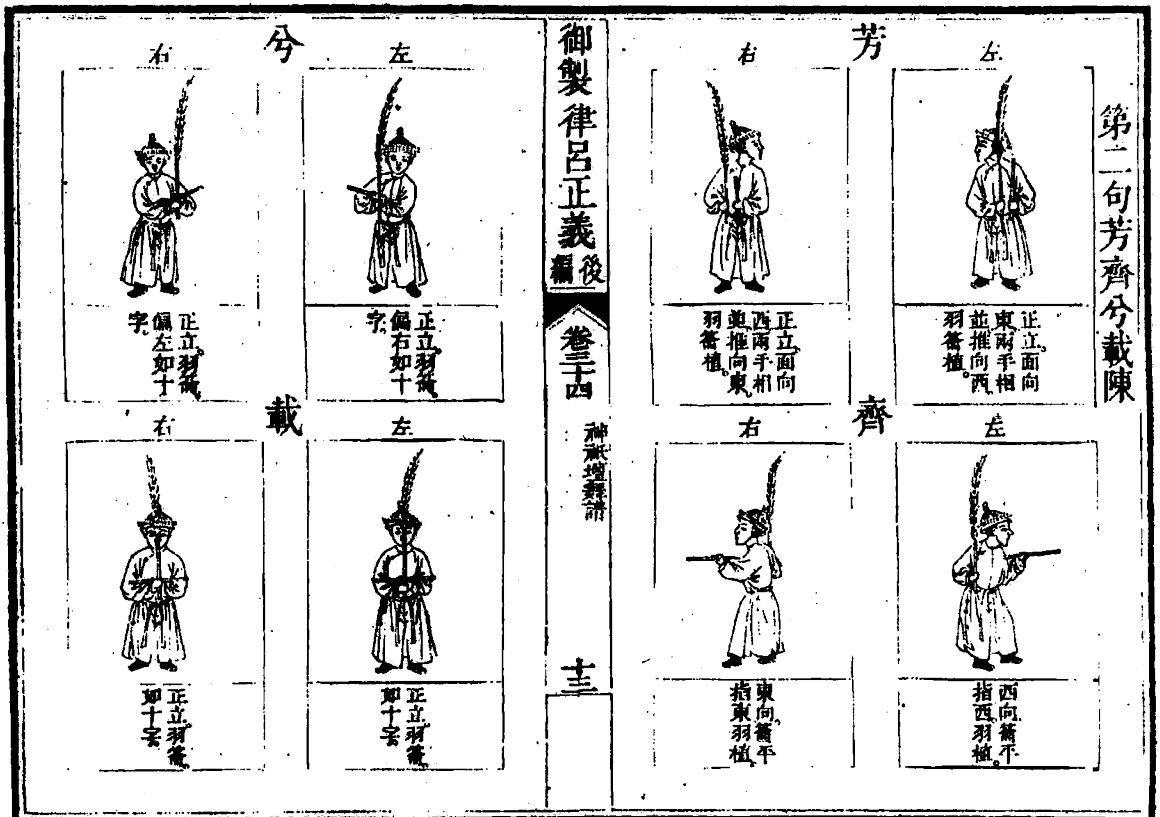 第二句芳齊兮載陳
芳
左
正立。面向
東兩手相
並推向西
羽籥植。
右
正立。面向
西兩手相
並推向東
羽籥植。
齊
左
西向籥平
指西羽植。
右
東向籥平
指東羽植。
御製律呂正義後編
卷三十四
神祇壇舞譜
十三
兮
左
正立。羽籥
偏右如十
字。
右
正立。羽籥
偏左如十
字。
載
左
正立。羽籥
如十字。
右
正立。羽籥
如十字。